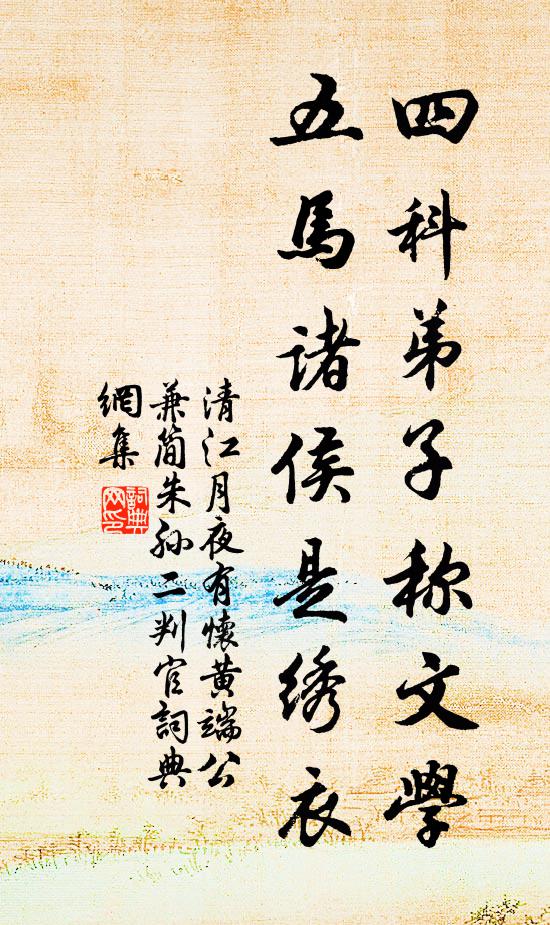 四科弟子称文學
五馬諸侯是綉衣
清江月夜有懷黄端公
兼简朱孙二判官詞典
網集
詞典
网印